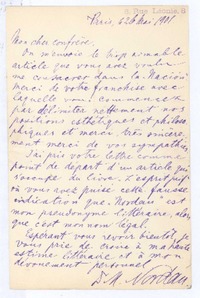 8, Rue Léonie, 8
Paris, 6 26 Mai 1901
Mon cher confrère,
On m'envoie le trop aimable
article que vous avez voulu
me consacrer dans la Nación.
merci de votre franchise avec
laquelle vous commencez
par délimiter nettement nos
positions esthétiques et philoso-
phiques et merci, très sincère-
ment merci de vos sympathies.
J'ai pris votre lettre comme
point de départ d'un article qui
s'occupe du livre
où vous avez puisé cette fausse
indication que "Nordau" est
mon pseudonyme littéraire, alors
que c'est mon nom légal.
Espérant vous revoir bientôt, je
vous prie de croire à ma haute
estime littéraire et à mon
dévouement personnel.
Dr M. Nordau